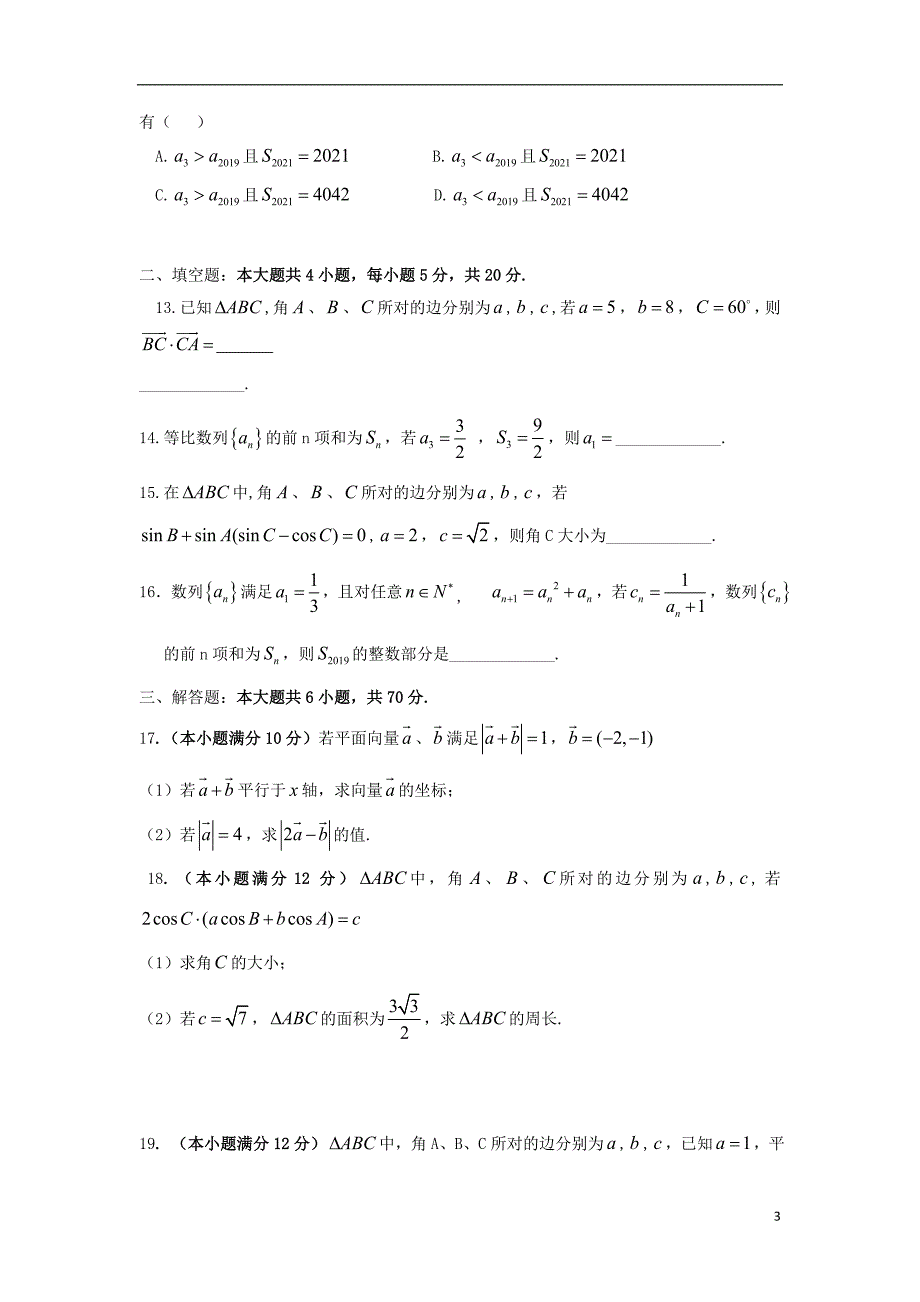 有（ ）
A. a₃ > a₂₀₁₉且S₂₀₂₁ = 2021 B. a₃ < a₂₀₁₉且S₂₀₂₁ = 2021
C. a₃ > a₂₀₁₉且S₂₀₂₁ = 4042 D. a₃ < a₂₀₁₉且S₂₀₂₁ = 4042
二、填空题：本大题共4小题，每小题5分，共20分.
13.已知ΔABC,角A、B、C所对的边分别为a,b,c,若a=5，b=8，C=60°,则
$\overrightarrow{BC}\cdot\overrightarrow{CA}$=_______
_____________.
14.等比数列{aₙ}的前n项和为Sₙ，若a₃=$\frac{3}{2}$ ，S₃=$\frac{9}{2}$，则a₁=_____________.
15.在ΔABC中,角A、B、C所对的边分别为a,b,c，若
sin B+sin A(sin C−cos C)=0, a=2，c=√2，则角C大小为_____________.
16．数列{aₙ}满足a₁=$\frac{1}{3}$，且对任意n∈N*， $a_{n+1}=a_n^2+a_n$，若cₙ=$\frac{1}{a_n+1}$，数列{cₙ}
的前n项和为Sₙ，则S₂₀₁₉的整数部分是_____________.
三、解答题：本大题共6小题，共70分.
17.（本小题满分10分）若平面向量$\vec{a}$、$\vec{b}$满足$|\vec{a}+\vec{b}|$=1，$\vec{b}$=(−2,−1)
（1）若$\vec{a}+\vec{b}$平行于x轴，求向量$\vec{a}$的坐标；
（2）若$|\vec{a}|$=4，求$|2\vec{a}-\vec{b}|$的值.
18.（本小题满分12分）ΔABC中，角A、B、C所对的边分别为a,b,c,若
2cos C·(a cos B+b cos A)=c
（1）求角C的大小；
（2）若c=√7，ΔABC的面积为$\frac{3\sqrt{3}}{2}$，求ΔABC的周长.
19. （本小题满分12分）ΔABC中，角A、B、C所对的边分别为a,b,c，已知a=1，平
3